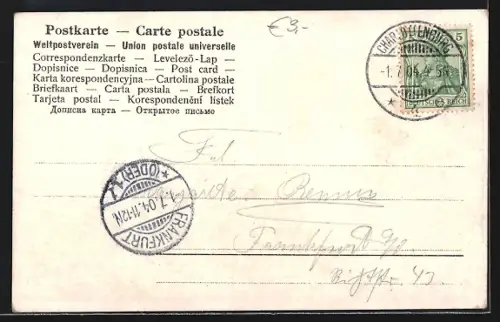 Postkarte — Carte postale
Weltpostverein — Union postale universelle
Correspondenzkarte — Levelezö-Lap —
Dopisnice — Dopisnica — Post card —
Karta korespondencyjna — Cartolina postale
Briefkaart — Carta postala — Brefkort
Tarjeta postal — Korespondenční lístek
Дописна карта — Открытое письмо
€9,-
CHARLOTTENBURG
5
-1.7.04. 4-5
*
Frl.
Frankfurt a/O
43
FRANKFURT
1.7.04.11-12N
* (ODER) 1